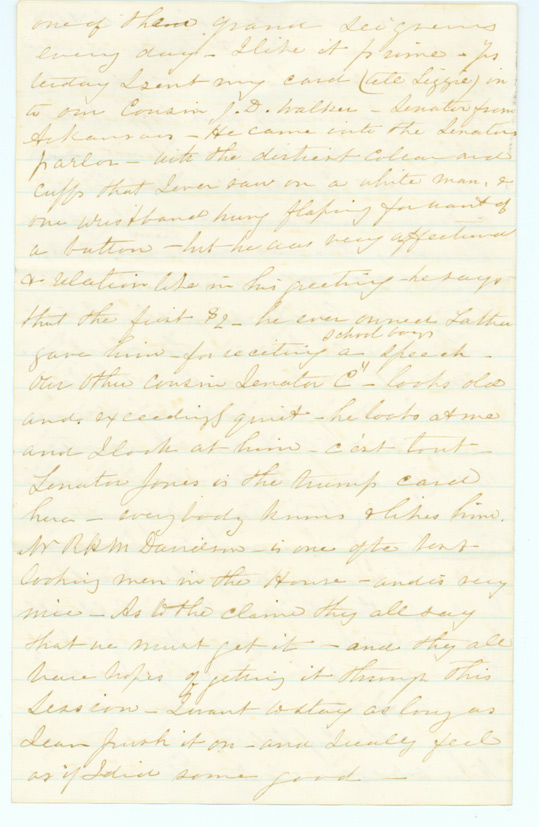 one of them grand Seigneurs
every day - I like it prime - Yes
terday I sent my card (tell Lizzie) on
to our Cousin J. D. Walker - Senator from
Arkansas - He came into the Senators
parlor - with the dirtiest colear and
cuffs that I ever saw on a white man, &
one wristband hung flaping for want of
a button - but he was very affectionat
& relation like in his greeting - he says
that the first $2 - he ever owned Father
gave him - for reciting a school boys speech -
Our other Cousin Senator C" - looks old
and exceedingly quiet - he looks at me
and I look at him - c'est tout -
Senator Jones is the trump card
here - everybody knows & likes him.
Mr R H M Davidson - is one of the best
looking men in the House - and is very
nice - As to the claim they all say
that we must get it - and they all
have hopes of getting it through this
Session - I want to stay as long as
I can push it on - and I really feel
as if I did some good -